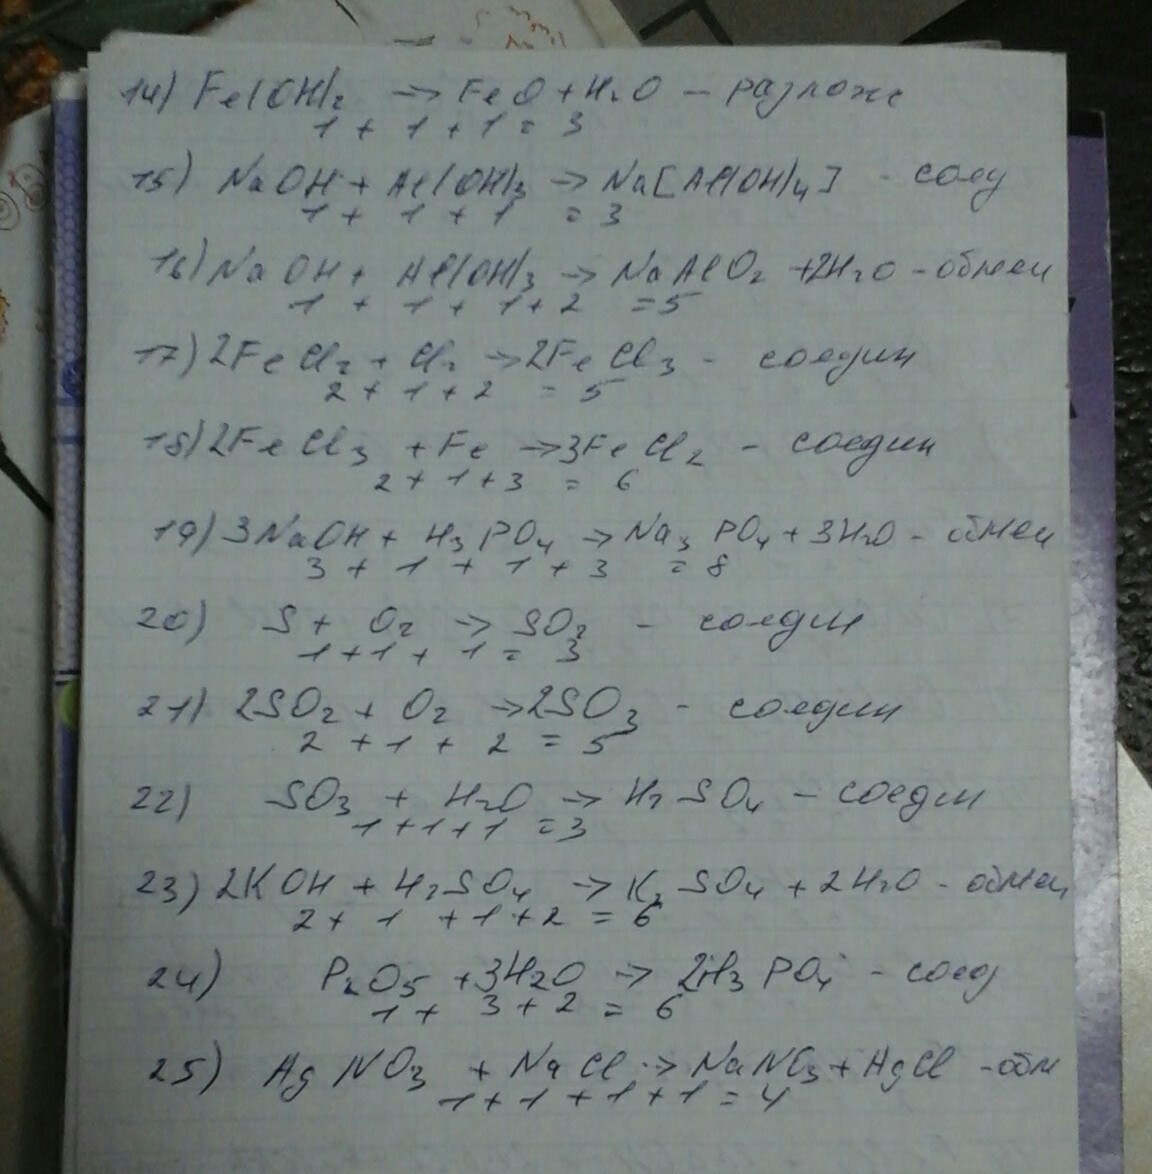 14) Fe(OH)2 → FeO + H2O – разлож
1 + 1 + 1 = 3
15) NaOH + Al(OH)3 → Na[Al(OH)4] - соед
1 + 1 + 1 = 3
16) NaOH + Al(OH)3 → NaAlO2 + 2H2O - обмен
1 + 1 + 1 + 2 = 5
17) 2FeCl2 + Cl2 → 2FeCl3 - соедин
2 + 1 + 2 = 5
18) 2FeCl3 + Fe → 3FeCl2 - соедин
2 + 1 + 3 = 6
19) 3NaOH + H3PO4 → Na3PO4 + 3H2O - обмен
3 + 1 + 1 + 3 = 8
20) S + O2 → SO2 - соедин
1 + 1 + 1 = 3
21) 2SO2 + O2 → 2SO3 - соедин
2 + 1 + 2 = 5
22) SO3 + H2O → H2SO4 - соедин
1 + 1 + 1 = 3
23) 2KOH + H2SO4 → K2SO4 + 2H2O - обмен
2 + 1 + 1 + 2 = 6
24) P2O5 + 3H2O → 2H3PO4 - соед
1 + 3 + 2 = 6
25) AgNO3 + NaCl → NaNO3 + AgCl - обм
1 + 1 + 1 + 1 = 4